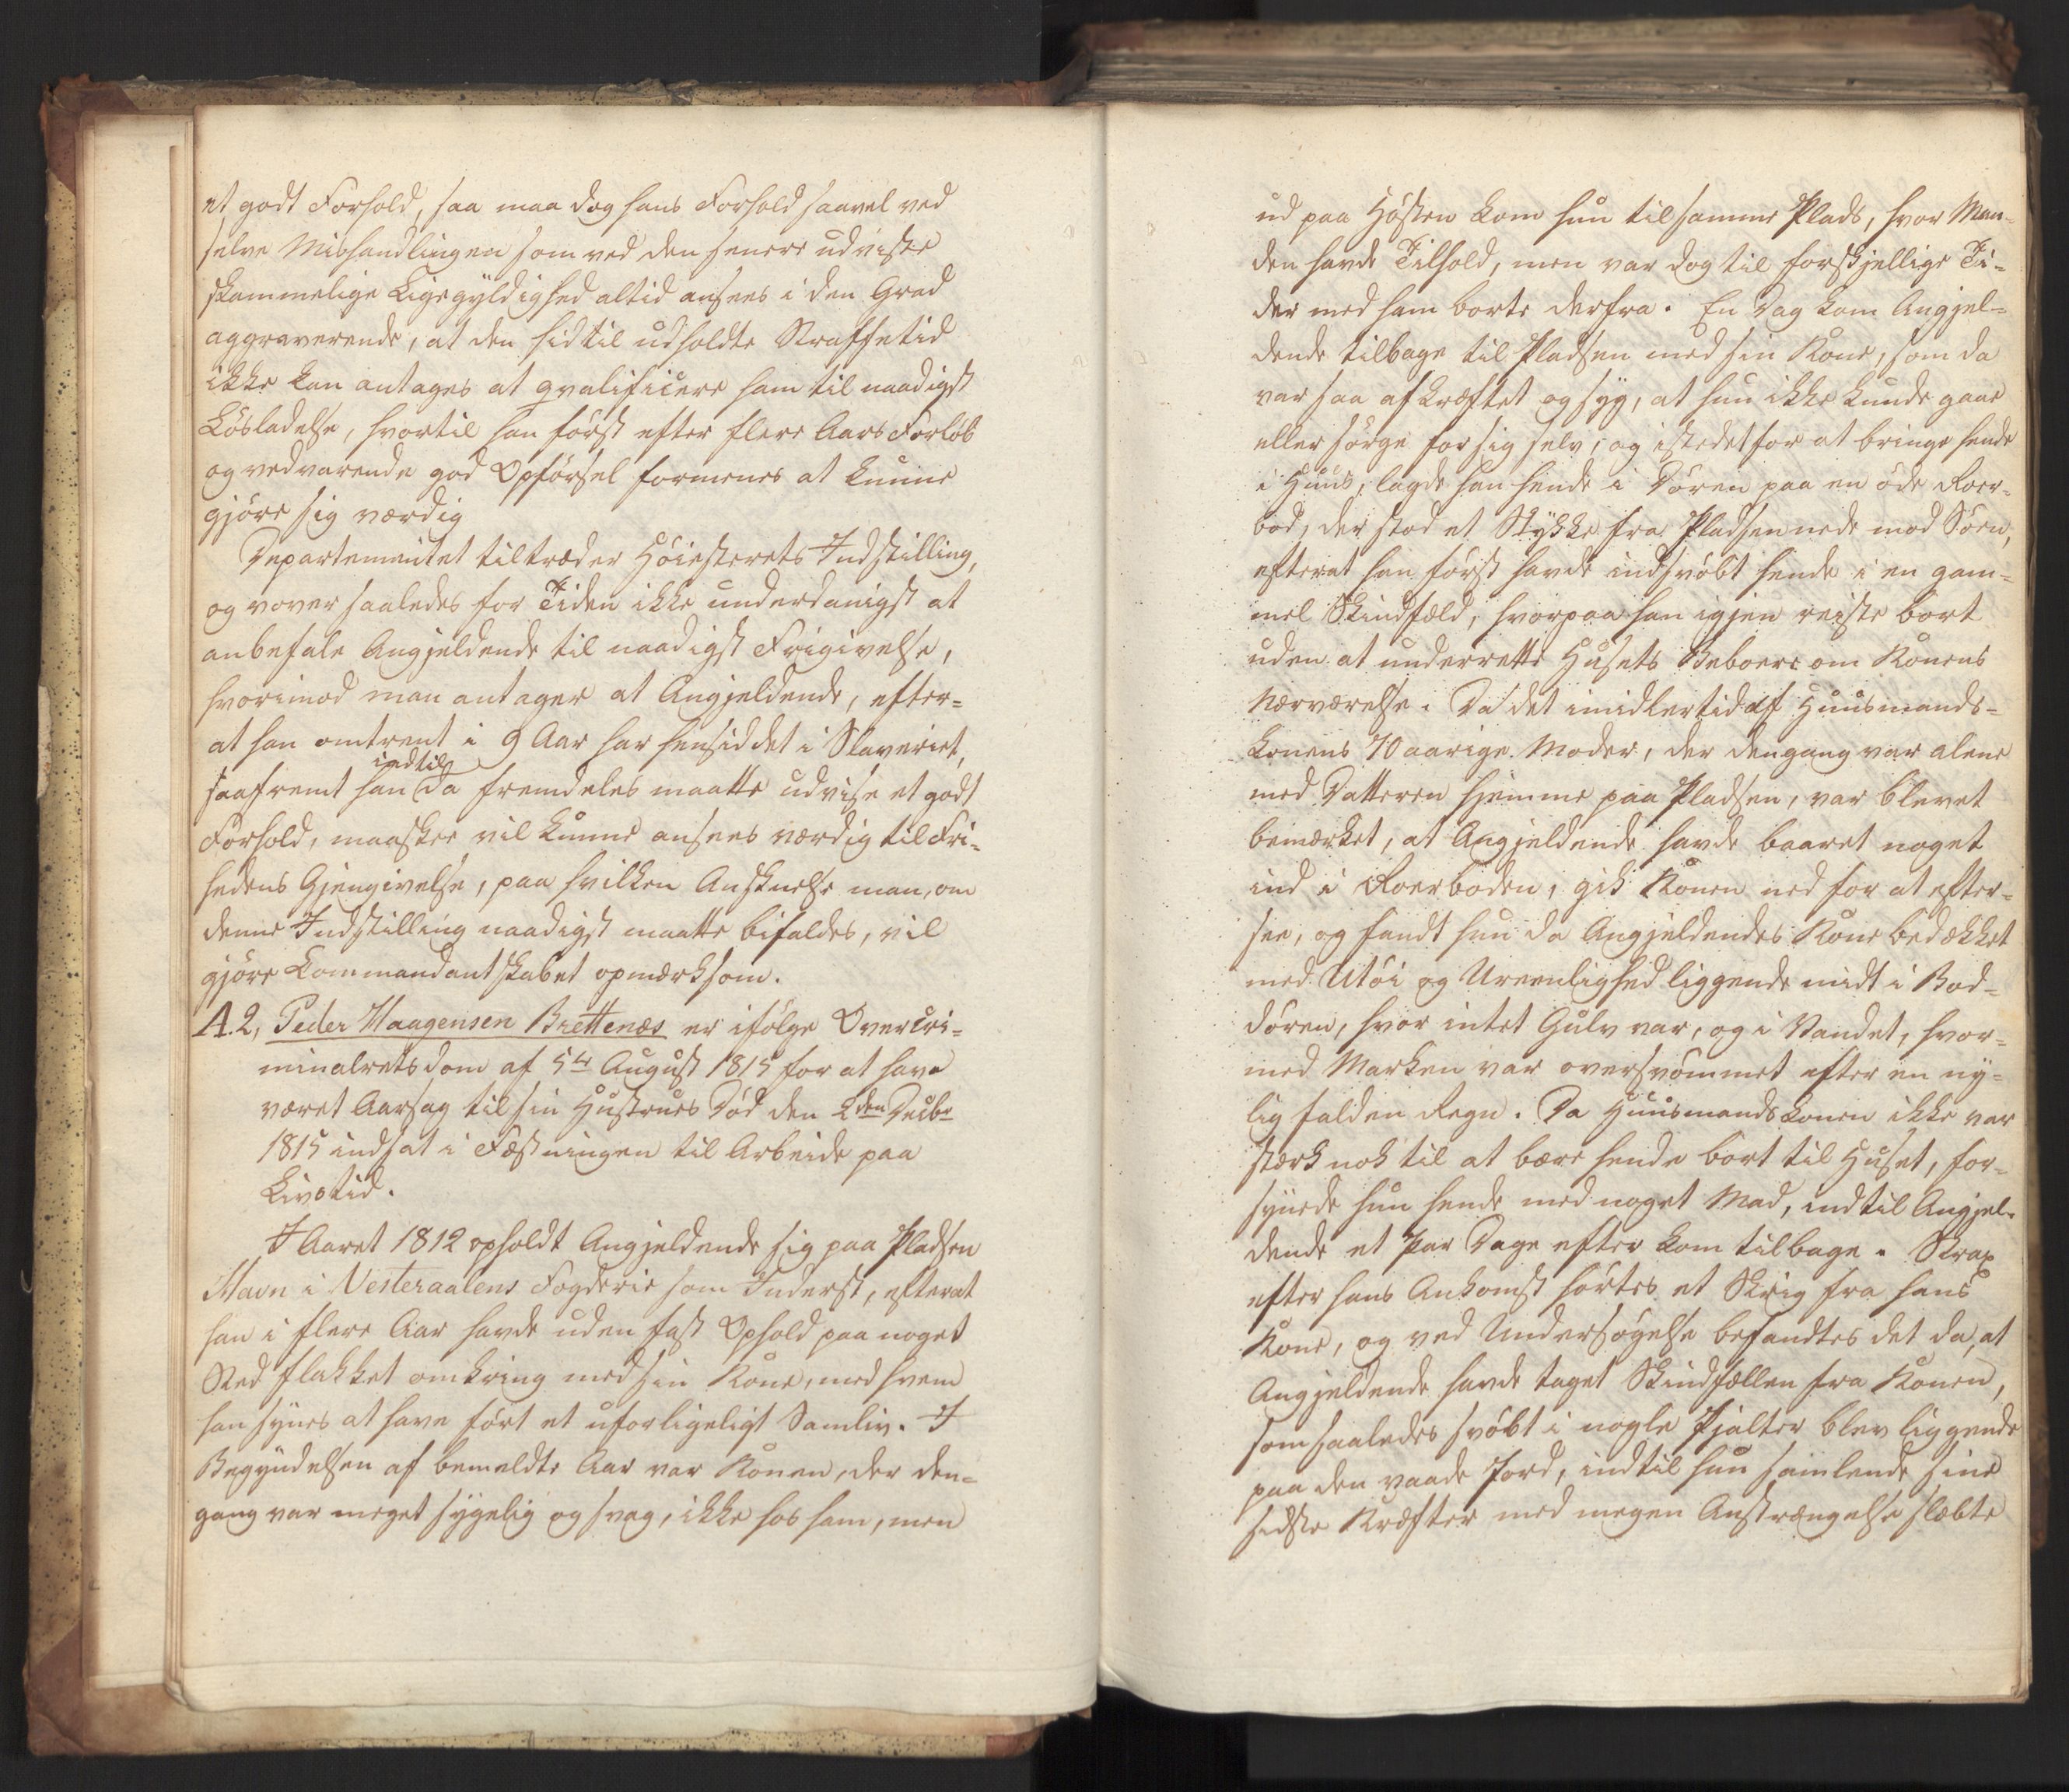 et godt Forhold, saa maa dog hans Forhold saavel ved
selve Mishandlingen som ved den senere udviste
skammelige Ligegyldighed altid ansees i den Grad
aggraverende, at den hidtil udholdte Straffetid
ikke kan antages at qvalificere ham til naadigst
Løsladelse, hvortil han først efter flere Aars Forløb
og vedvarende god Opførsel formenes at kunne
gjøre sig værdig
Departementet tiltræder Høiesterets Indstilling,
og vover saaledes for Tiden ikke underdanigst at
anbefale Angjeldende til naadigst Frigivelse,
hvorimod man antager at Angjeldende, efter-
at han omtrent i 9 Aar har hensiddet i Slaveriet,
saafremt han indtil da fremdeles maatte udvise et godt
Forhold, maaskee vil kunne ansees værdig til Fri-
hedens Gjengivelse, paa hvilken Anskuelse man, om
denne Indstilling naadigst maatte bifaldes, vil
gjøre Commandantskabet opmærksom.
A.2, Peder Haagensen Brettenæs er ifølge Overcri-
minalretsdom af 5te August 1815 for at have
været Aarsag til sin Hustrues Død den 2den Decbr
1815 indsat i Fæstningen til Arbeide paa
Livstid.
I Aaret 1812 opholdt Angjeldende sig paa Pladsen
Havn i Vesteraalens Fogderie som Inderst, efterat
han i flere Aar havde uden fast Ophold paa noget
Sted flakket omkring med sin Kone, med hvem
han synes at have ført et uforligeligt Samliv. I
Begyndelsen af bemeldte Aar var Konen, der den-
gang var meget sygelig og svag, ikke hos ham, men
ud paa Høsten kom hun til samme Plads, hvor Man-
den havde Tilhold, men var dog til forskjellige Ti-
der med ham borte derfra. En Dag kom Angjel-
dende tilbage til Pladsen med sin Kone, som da
var saa afkræftet og syg, at hun ikke kunde gaae
eller sørge for sig selv, og istedetfor at bringe hende
i Huus, lagde han hende i Døren paa en øde Roer-
bod, der stod et Stykke fra Pladsen nede mod Søen,
efterat han først havde indsvøbt hende i en gam-
mel Skindfæld, hvorpaa han igjen reiste bort
uden at underrette Husets Beboere om Konens
Nærværelse. Da det imidlertid af Huusmands-
konens 70 aarige Moder, der dengang var alene
med Datteren hjemme paa Pladsen, var blevet
bemærket, at Angjeldende havde baaret noget
ind i Roerboden, gik Konen ned for at efter-
see, og fandt hun da Angjeldendes Kone bedækket
med Utøi og Ureenlighed liggende midt i Bod-
døren, hvor intet Gulv var, og i Vandet, hvor-
med Marken var oversvømmet efter en ny-
lig falden Regn. Da Huusmandskonen ikke var
stærk nok til at bære hende bort til Huset, for-
synede hun hende med noget Mad, indtil Angjel-
dende et Par Dage efter kom tilbage. Strax
efter hans Ankomst hørtes et Skrig fra hans
Kone, og ved Undersøgelse befandtes det da, at
Angjeldende havde taget Skindfællen fra Konen,
som saaledes svøbt i nogle Pjalter blev liggende
paa den vaade Jord, indtil hun samlende sine
sidste Kræfter med megen Anstrængelse slæbte